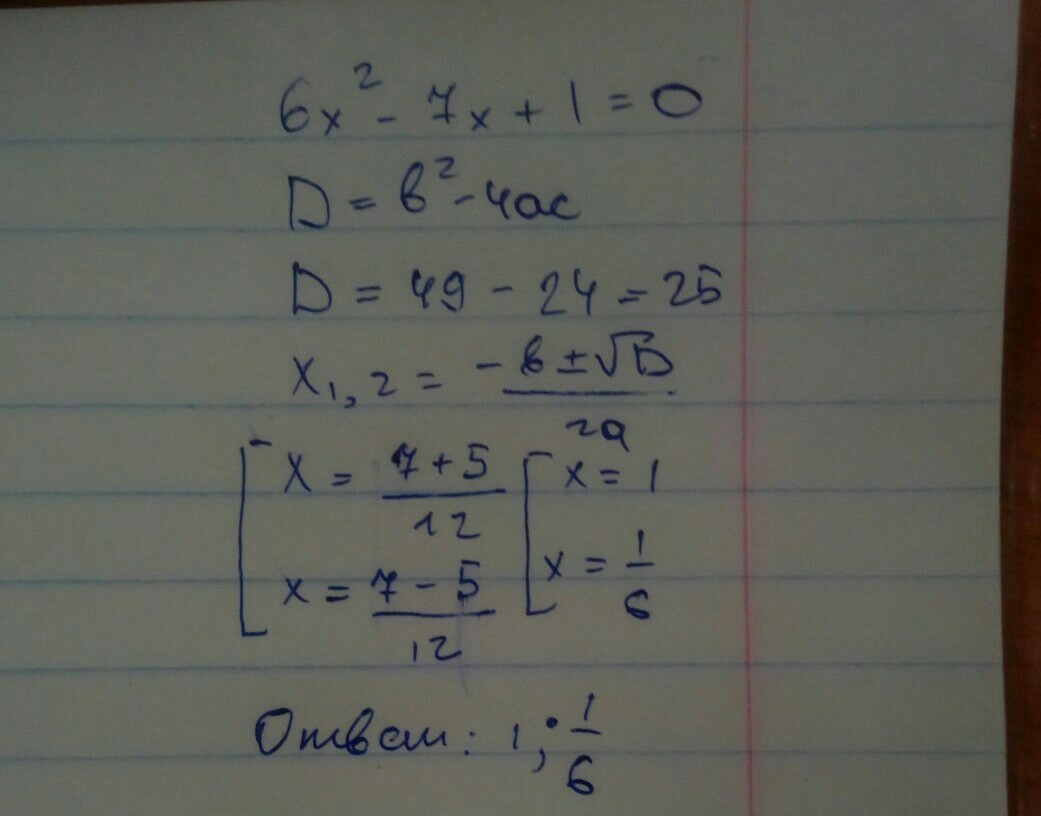 6x² - 7x + 1 = 0
D = в² - 4ac
D = 49 - 24 = 25
x₁,₂ = -в ± √D / 2a
[ x = 7 + 5 / 12 [ x = 1
x = 7 - 5 / 12 x = 1/6
Ответ: 1; 1/6